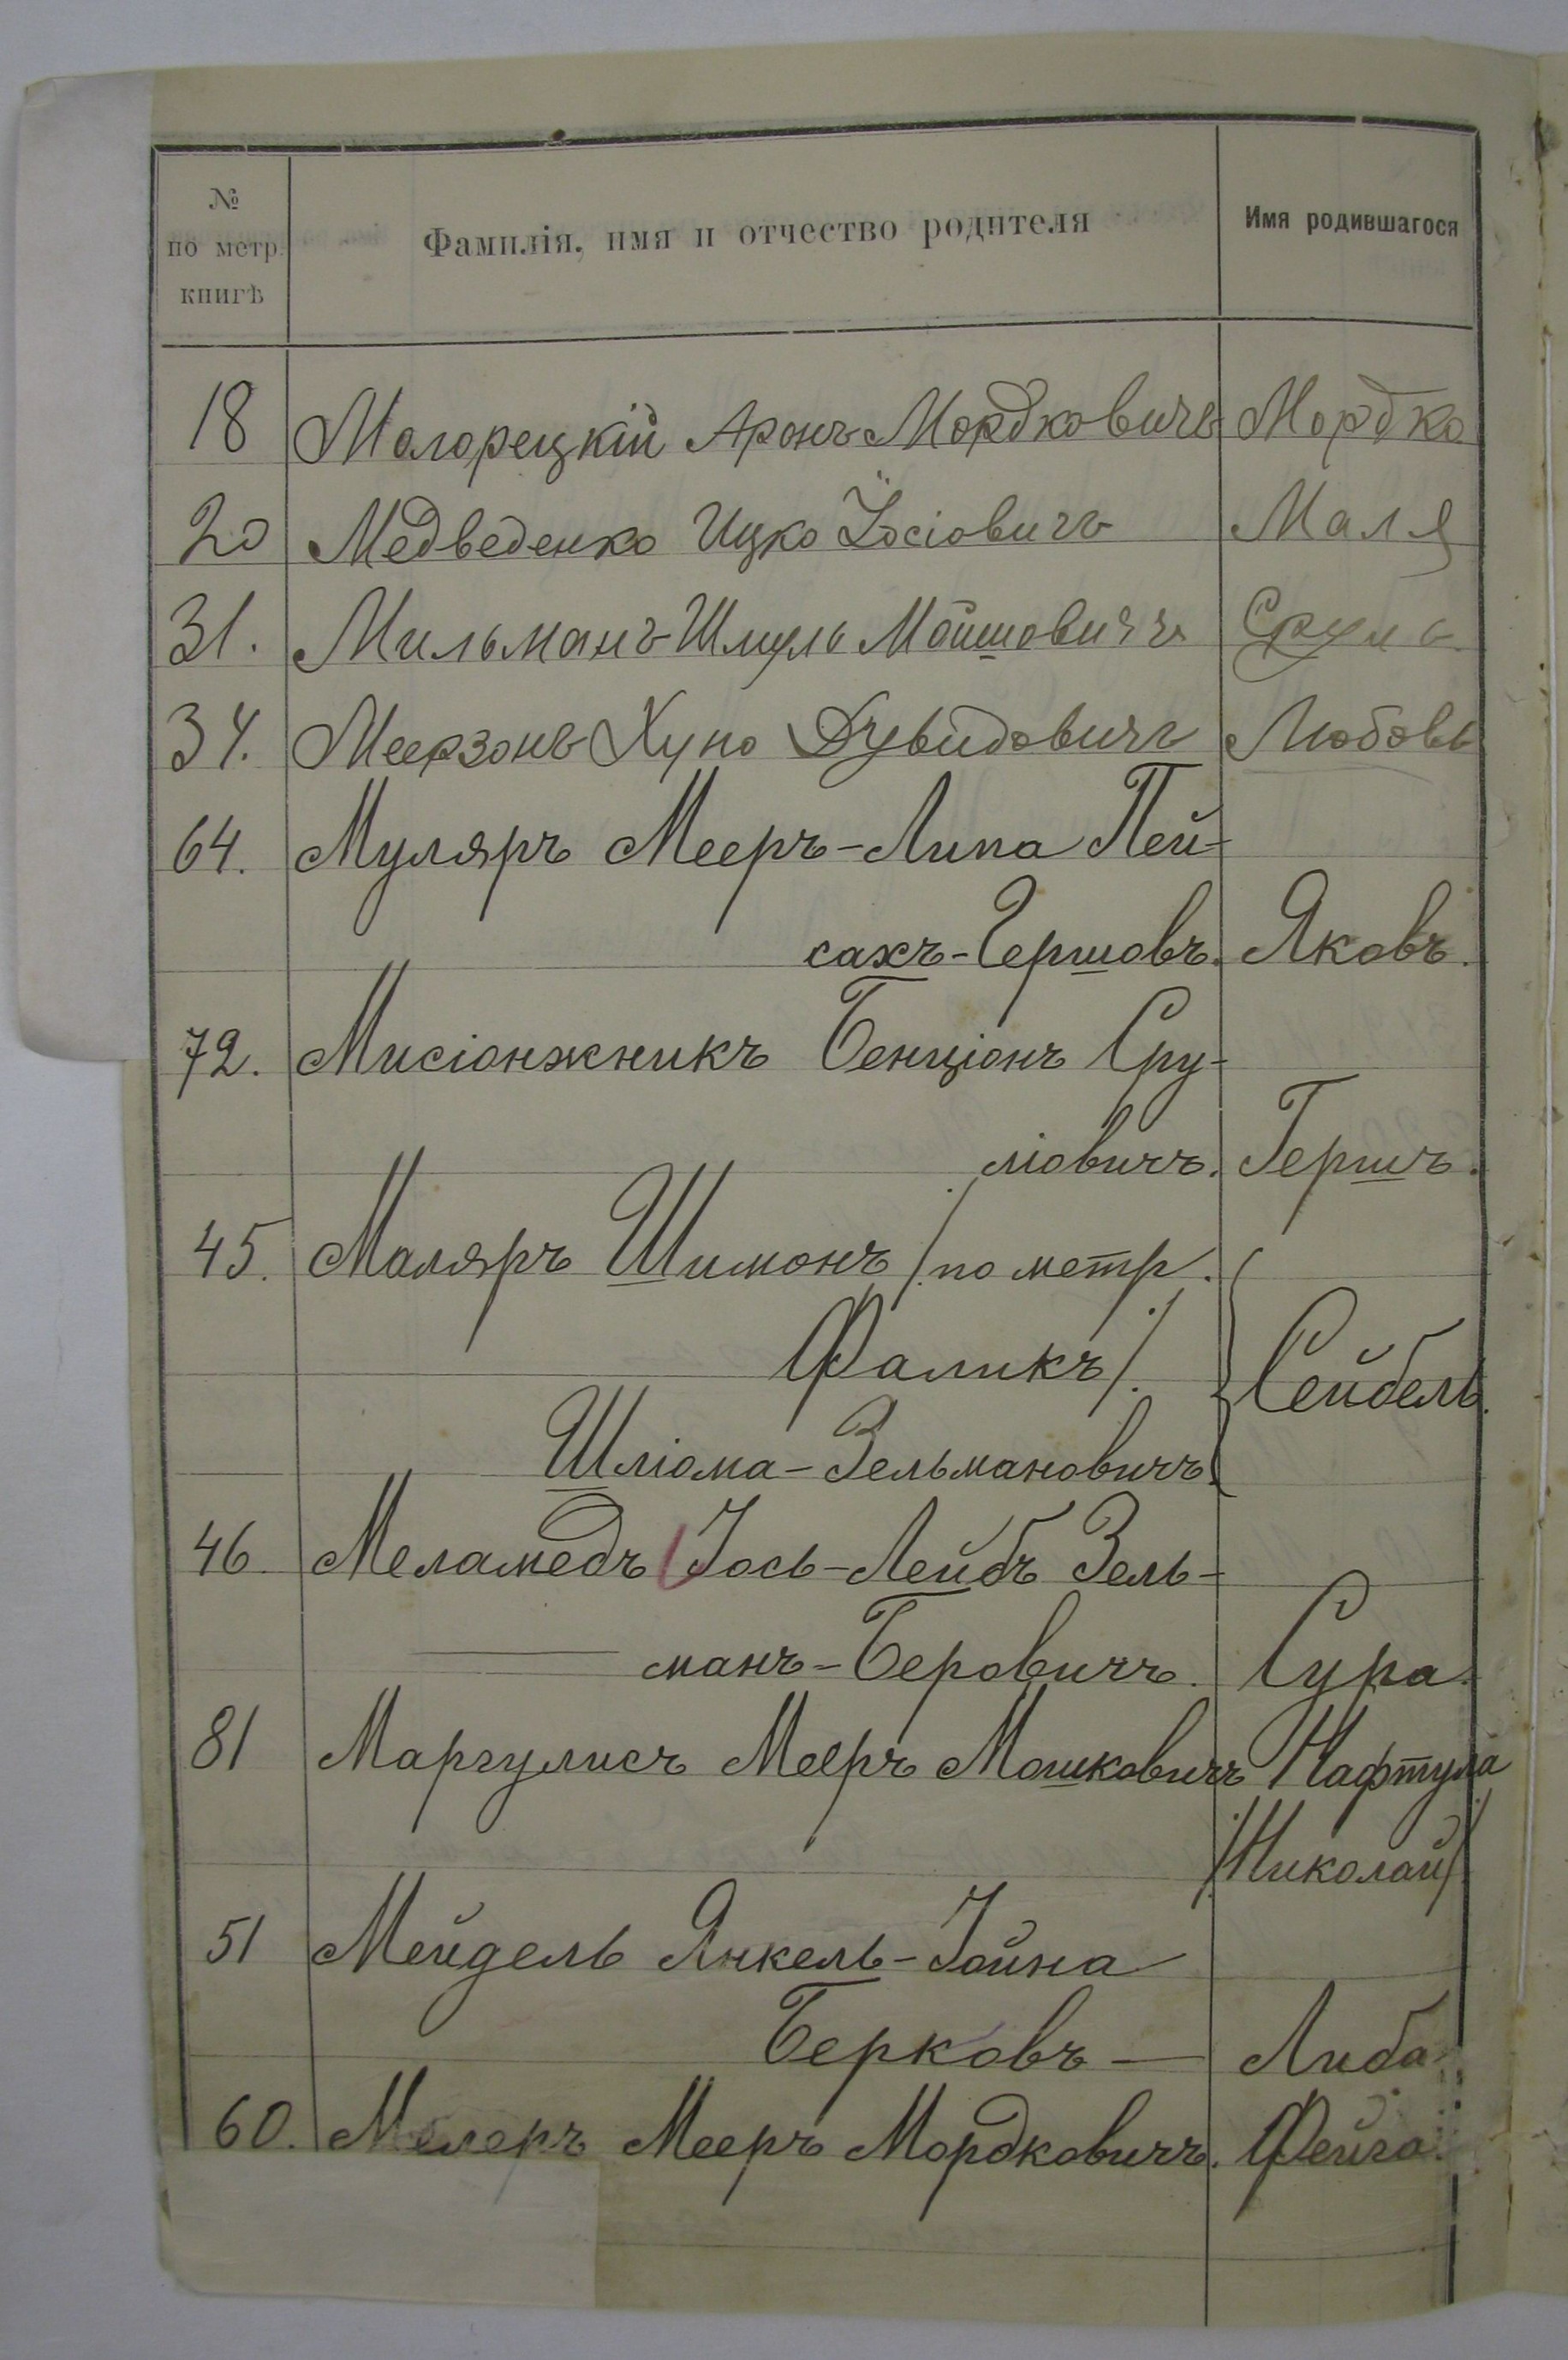 №
по метр.
книгѣ
Фамилія, имя и отчество родителя
Имя родившагося
18 Могорецкій Аронъ Мордковичъ Мордко
20 Медведенко Ицко Іосіовичъ Маля
31. Мильманъ Шмуль Мошковичъ Сруль
34. Меерзонъ Хуно Дувидовичъ Любовь
64. Муляръ Мееръ-Липа Пей-
сахъ-Гершовъ. Яковъ.
72. Мисіонжникъ Бенціонъ Сру-
ліовичъ. Гершъ.
45. Маляръ Шимонъ /по метр.
Фаликъ/. Сейбель.
Шліома-Зельмановичъ
46 Меламедъ Іось-Лейбъ Зель-
манъ-Беровичъ. Сура.
81 Маргулисъ Мееръ Мошковичъ Нафтула
/Николай/
51 Мейдель Янкель-Іойна
Берковъ — Либа
60. Мелеръ Мееръ Мордковичъ. Фейга.